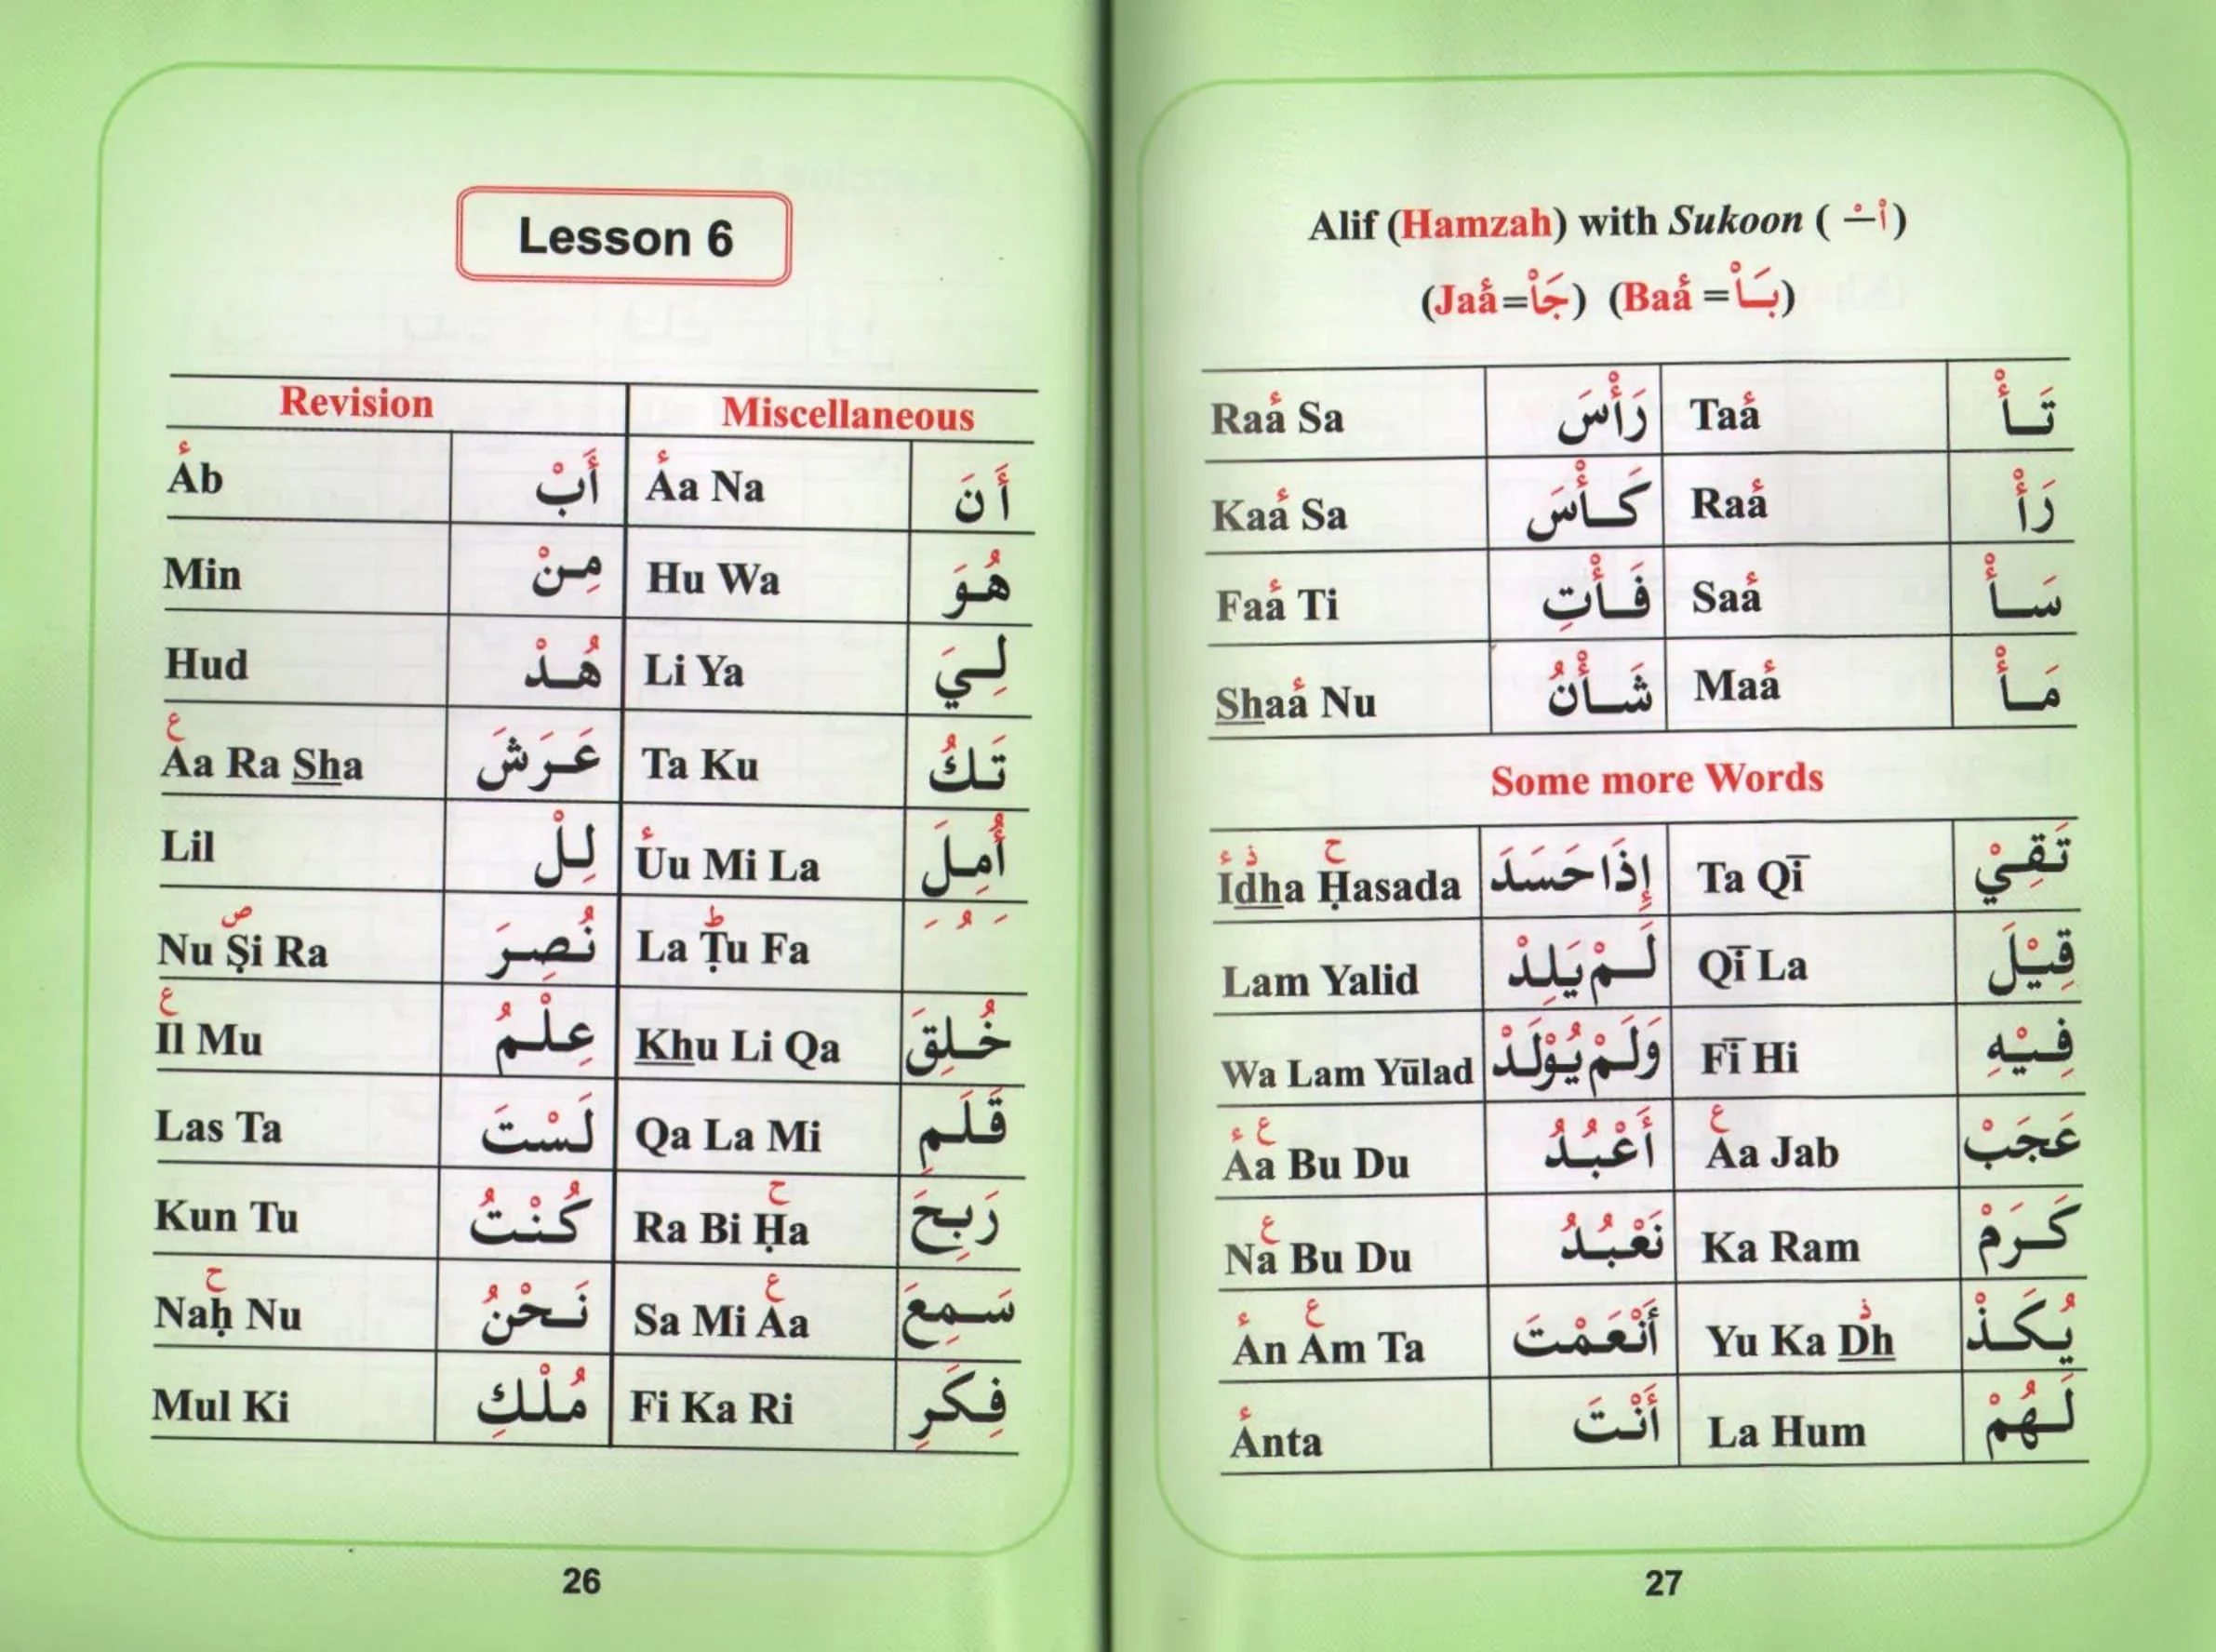 Lesson 6
Revision Miscellaneous
Åb أَبْ Åa Na أَنَ
Min مِنْ Hu Wa هُوَ
Hud هُدْ Li Ya لِيَ
Åa Ra Sha عَرَشَ Ta Ku تَكُ
Lil لِلْ Uu Mi La أُمِلَ
Nu Ṣi Ra نُصِرَ La Ṭu Fa
Il Mu عِلْمُ Khu Li Qa خُلِقَ
Las Ta لَسْتَ Qa La Mi قَلَمِ
Kun Tu كُنْتُ Ra Bi Ḥa رَبِحَ
Naḥ Nu نَحْنُ Sa Mi Aa سَمِعَ
Mul Ki مُلْكِ Fi Ka Ri فِكَرِ
26
Alif (Hamzah) with Sukoon ( أْ )
(Jaå=جَأْ) (Baå =بَأْ)
Raå Sa رَأْسَ Taå تَأْ
Kaå Sa كَأْسَ Raå رَأْ
Faå Ti فَأْتِ Saå سَأْ
Shaå Nu شَأْنُ Maå مَأْ
Some more Words
Idha Ḥasada إِذَا حَسَدَ Ta Qī تَقِيْ
Lam Yalid لَمْ يَلِدْ Qī La قِيْلَ
Wa Lam Yūlad وَلَمْ يُوْلَدْ Fī Hi فِيْهِ
Aa Bu Du أَعْبُدُ Aa Jab عَجَبْ
Na Bu Du نَعْبُدُ Ka Ram كَرَمْ
An Am Ta أَنْعَمْتَ Yu Ka Dh يُكَذْ
Anta أَنْتَ La Hum لَهُمْ
27